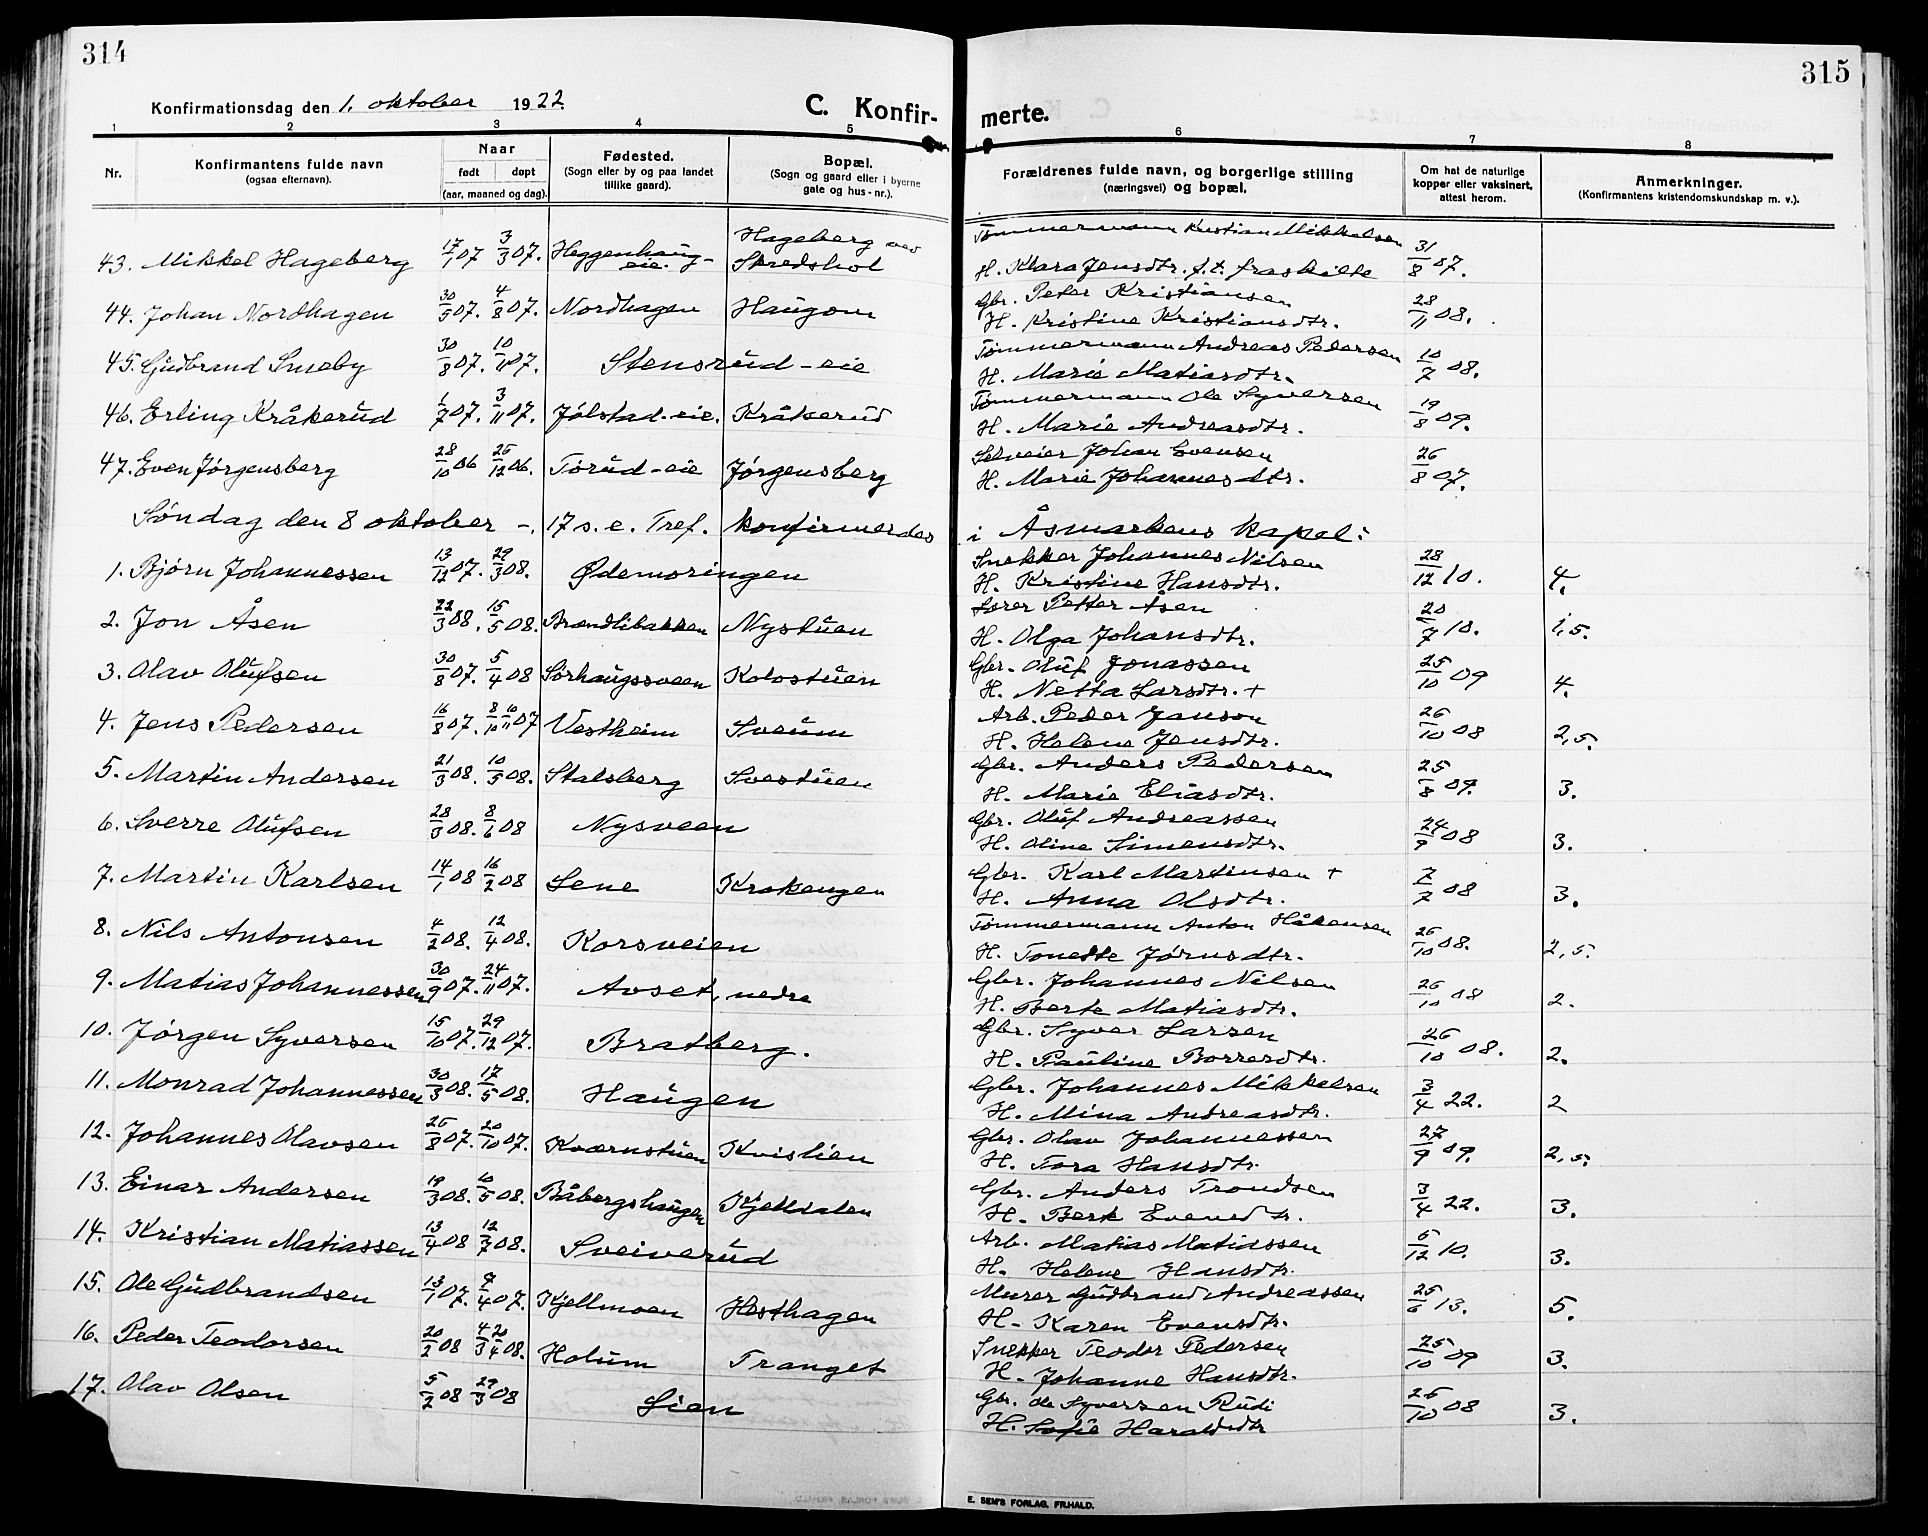 314
315
Konfirmationsdag den 1. oktober 1922.
C. Konfir-
merte.
1 2 3 4 5 6 7 8
Nr.
Konfirmantens fulde navn
(ogsaa efternavn).
Naar
født døpt
(aar, maaned og dag).
Fødested.
(Sogn eller by og paa landet
tillike gaard).
Bopæl.
(Sogn og gaard eller i byerne
gate og hus-nr.).
Forældrenes fulde navn, og borgerlige stilling
(næringsvei) og bopæl.
Om hat de naturlige
kopper eller vaksinert,
attest herom.
Anmerkninger.
(Konfirmantens kristendomskundskap m. v.).
43. Mikkel Hageberg 17/1 07 3/3 07. Heggenhaug-eie. Hageberg ved Skredshol Tømmermann Kristian Mikkelsen 31/8 07.
H. Klara Jensdtr. f.t. fraskilte
44. Johan Nordhagen 30/5 07. 4/8 07. Nordhagen Haugom Gbr. Peter Kristiansen 28/11 08.
H. Kristine Kristiansdtr.
45. Gudbrand Smeby 30/8 07. 10/11 07. Stensrud-eie Tømmermann Andreas Pedersen 10/7 08.
H. Marie Matiasdtr.
46. Erling Kråkerud 1/7 07. 3/11 07. Jølstad-eie. Kråkerud Tømmermann Ole Syversen 19/8 09.
H. Marie Andreasdtr.
47. Even Jørgensberg 28/10 06 26/12 06. Torud-eie Jørgensberg Selveier Johan Evensen 26/8 07.
H. Marie Johannesdtr.
Søndag den 8 oktober -. 17 s. e. Tref. konfirmerdes i Åsmarkens kapel:
1. Bjørn Johannessen 13/12 07. 29/3 08. Ødemoringen Snekker Johannes Nilsen 28/12 10. 4.
H. Kristine Hansdtr.
2. Jon Åsen 22/3 08. 15/5 08. Brændlibakken Nystuen Lærer Petter Åsen 20/7 10. 1,5.
H. Olga Johansdtr.
3. Olav Olufsen 30/8 07. 5/4 08 Sørhaugssveen Kolostuen Gbr. Oluf Jonassen 25/10 09 4.
H. Netta Larsdtr. +
4. Jens Pedersen 16/8 07. 8/10 10/11 07 Vestheim Sveum Arb. Peder Janson 26/10 08 2,5.
H. Helene Jensdtr.
5. Martin Andersen 21/3 08. 10/5 08. Stalsberg Svestuen Gbr. Anders Pedersen 25/8 09. 3.
H. Marie Eliasdtr.
6. Sverre Olufsen 28/3 08. 8/6 08 Nysveen Gbr. Oluf Andreassen 24/9 08 3.
H. Oline Simensdtr.
7. Martin Karlsen 14/1 08 16/2 08 Lene Krokengen Gbr. Karl Martinsen + 7/7 08 3.
H. Anna Olsdtr.
8. Nils Antonsen 4/2 08. 12/4 08. Korsveien Tømmermann Anton Håkensen 26/10 08. 2,5.
H. Tonette Jørnsdtr.
9. Matias Johannessen 30/9 07. 24/11 07. Avset, nedre Gbr. Johannes Nilsen 26/10 08 2.
H. Berte Matiasdtr.
10. Jørgen Syversen 15/10 07. 29/12 07. Bratberg. Gbr. Syver Larsen 26/10 08. 2.
H. Pauline Borresdtr.
11. Monrad Johannessen 30/3 08. 17/5 08. Haugen Gbr. Johannes Mikkelsen 3/4 22. 2
H. Mina Andreasdtr.
12. Johannes Olavsen 26/8 07. 20/10 07. Kværnstuen Kvislien Gbr. Olav Johannessen 27/9 09. 2,5.
H. Tora Hansdtr.
13. Einar Andersen 19/3 08. 10/5 08. Båbergshaugen Kjelldalen Gbr. Anders Trondsen 3/4 22. 3.
H. Berte Evensdtr.
14. Kristian Matiassen 13/4 08 12/7 08. Sveiverud Arb. Matias Matiassen 6/12 10. 3.
H. Helene Hansdtr.
15. Ole Gudbrandsen 13/1 07. 7/4 07. Kjellmoen Hesthagen Murer Gudbrand Andreassen 25/6 13. 5.
H. Karen Evensdtr.
16. Peder Teodorsen 20/2 08 4/3 20/4 08. Holum Tranget Snekker Teodor Pedersen 25/10 09 3.
H. Johanne Hansdtr.
17. Olav Olsen 5/2 08 29/3 08 Lien Gbr. Ole Syversen Rudi 26/10 08 3.
H. Sofie Haraldsdtr
E. SEM'S FORLAG, FR.HALD.